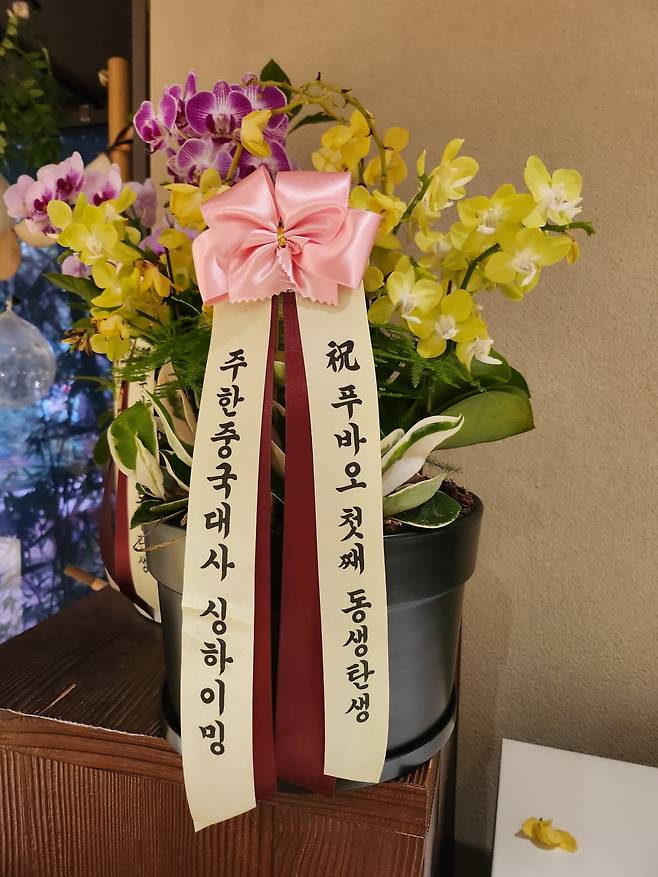 祝 푸바오 첫째 동생탄생
주한중국대사 싱하이밍